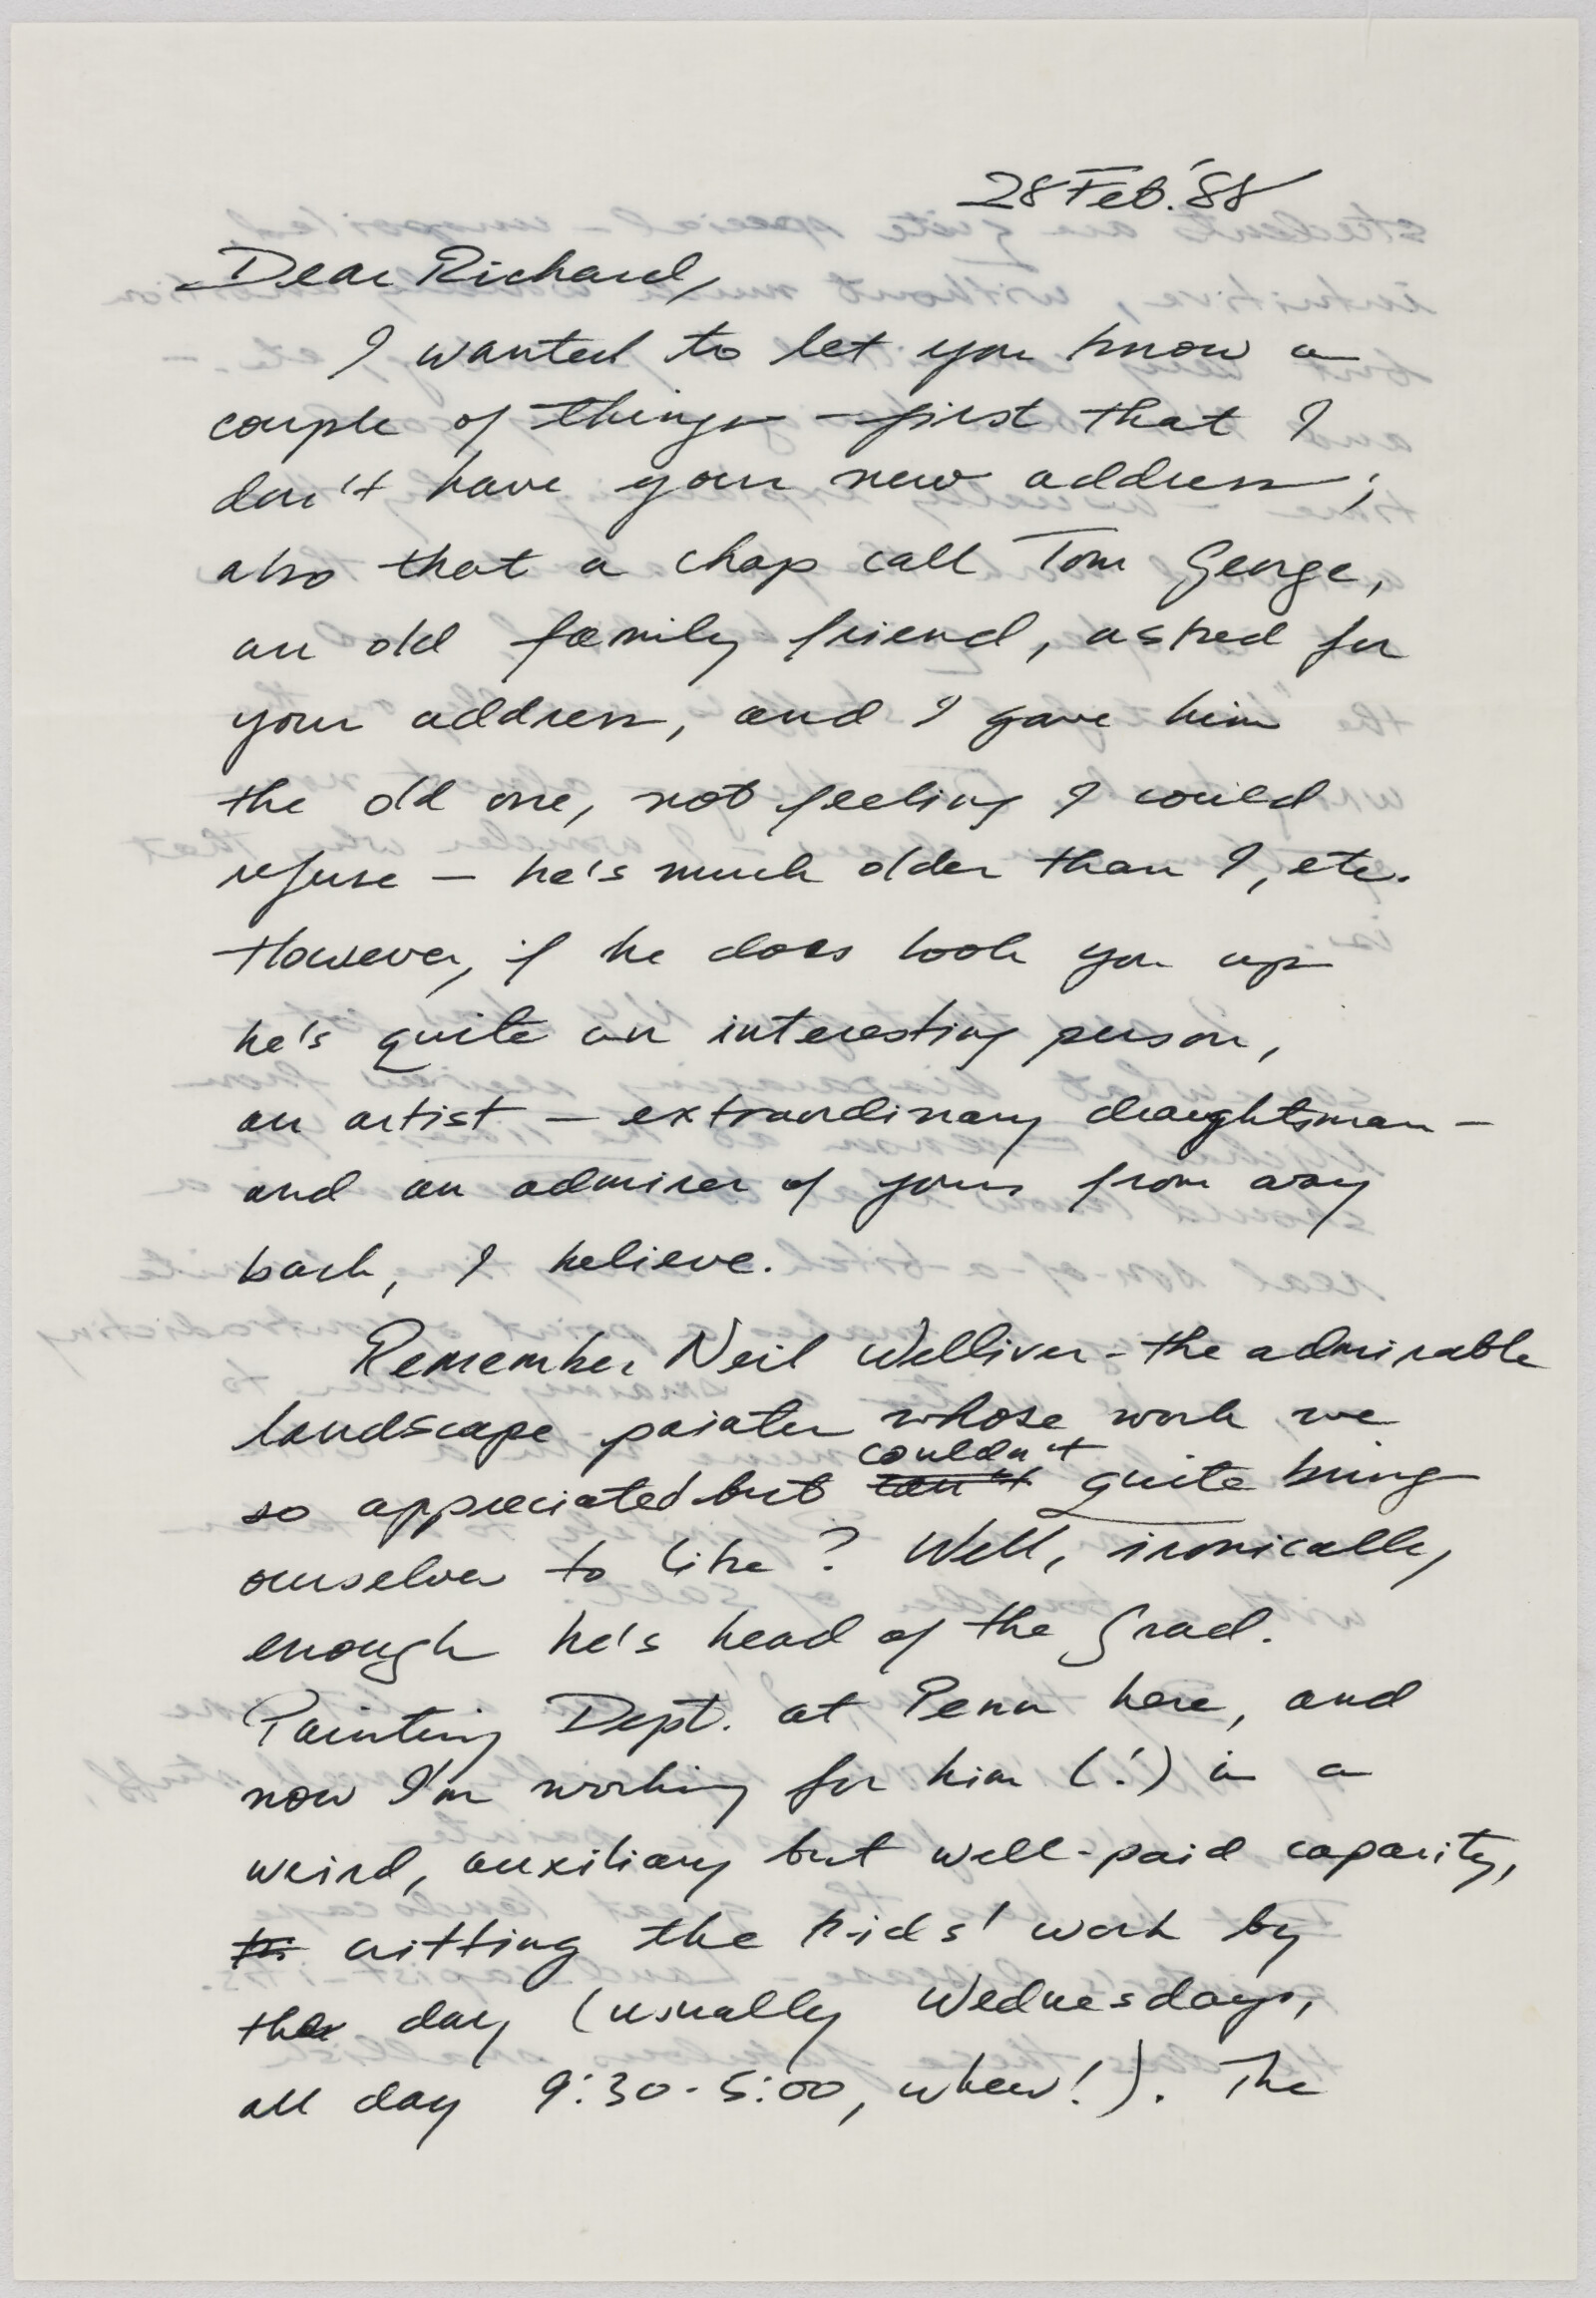 28 Feb. '88
Dear Richard,
I wanted to let you know a
couple of things — first that I
don't have your new address;
also that a chap call Tom George,
an old family friend, asked for
your address, and I gave him
the old one, not feeling I could
refuse — he's much older than I, etc.
However, if he does look you up
he's quite an interesting person,
an artist — extraordinary draughtsman —
and an admirer of yours from way
back, I believe.
Remember Neil Welliver - the admirable
landscape painter whose work we
so appreciated but couldn't quite bring
ourselves to like? Well, ironically,
enough he's head of the Grad.
Painting Dept. at Penn here, and
now I'm working for him (!) in a
weird, auxiliary but well-paid capacity,
critting the kids' work by
the day (usually Wednesdays,
all day 9:30-5:00, whew!). The